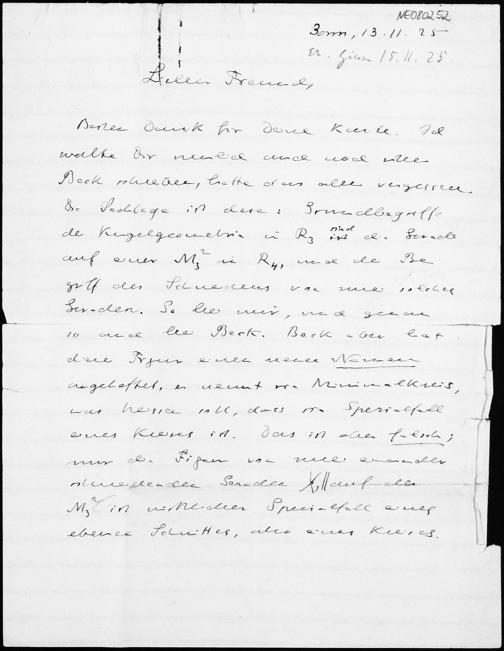 NE080252
Bonn, 13.11.25
15.11.25.
Lieber Freund,
Besten Dank für Deine Karte. Ich
wollte Dir neulich auch noch über
Beck schreiben, hatte das aber vergessen.
Die Sachlage ist diese: Grundbegriffe
der Kugelgeometrie in R3 sind die Gerade
auf einer M3² in R4, und der Be
griff des Schneidens von zwei solchen
Geraden. So bei mir, und genau
so auch bei Beck. Beck aber hat
diese Figur einen neuen Namen
angeheftet, er nennt sie Minimalkreis,
was heissen soll, dass sie Spezialfall
eines Kreises ist. Das ist aber falsch;
nur die Figur von zwei einander
schneidenden Geraden auf der
M3² ist wirklicher Spezialfall eines
ebenen Schnittes, also eines Kreises.